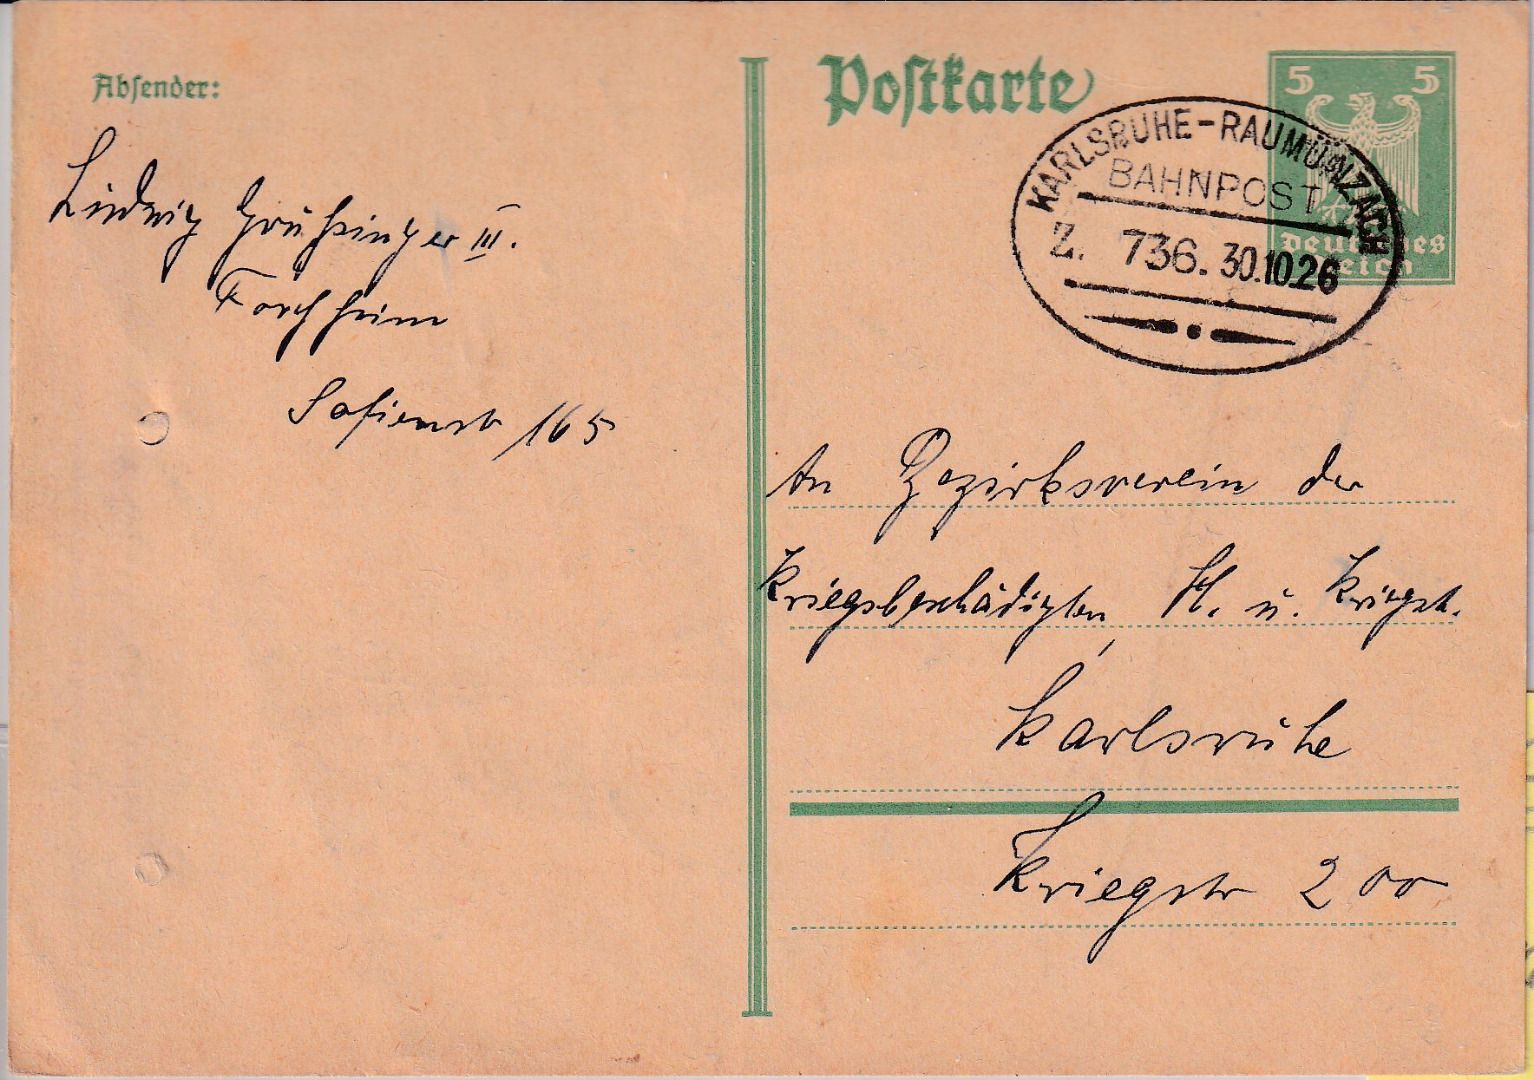 Absender:
Ludwig
III.
Forchheim
Sofienstr 165
Postkarte
5 5
Deutsches
Reich
KARLSRUHE-RAUMÜNZACH
BAHNPOST
Z. 736. 30.10.26
An Bezirksverein der
Kriegsbeschädigten H. u. Kriegsh.
Karlsruhe
Kriegstr 200